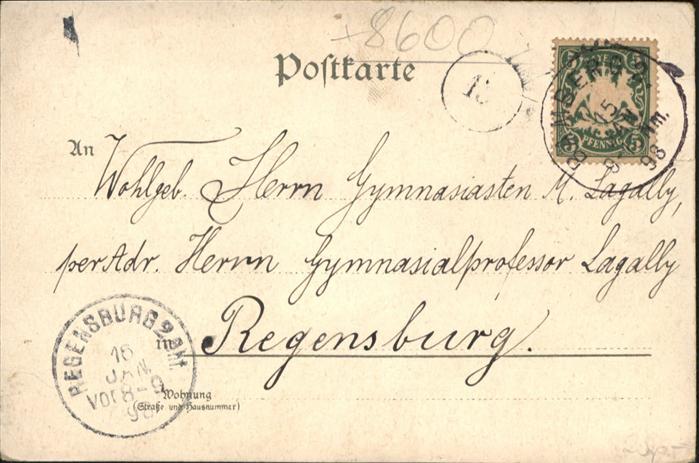 +8600
Postkarte
15
PFENNIG
5 5
An
Wohlgeb. Herrn Gymnasiasten M. Lagally,
per Adr. Herrn Gymnasialprofessor Lagally
in Regensburg.
REGENSBURG 2 BHf.
16
JAN.
VOR 8-9
98
Wohnung
(Straße und Hausnummer)